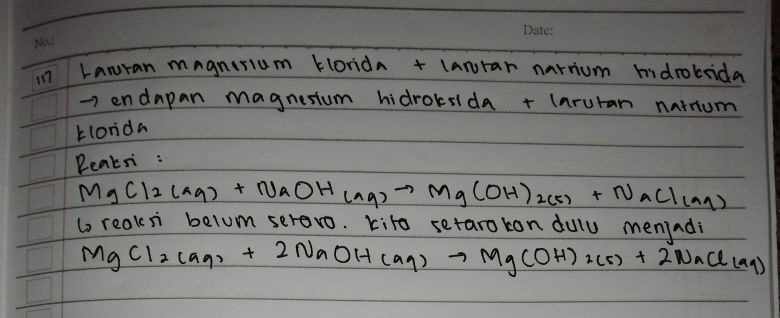 No.:
Date:
117 Larutan magnesium klorida + larutan natrium hidroksida
→ endapan magnesium hidroksida + larutan natrium
klorida
Reaksi :
MgCl2 (aq) + NaOH (aq) → Mg(OH)2(s) + NaCl(aq)
↳ reaksi belum setara. kita setarakan dulu menjadi
MgCl2 (aq) + 2NaOH (aq) → Mg(OH)2(s) + 2NaCl(aq)